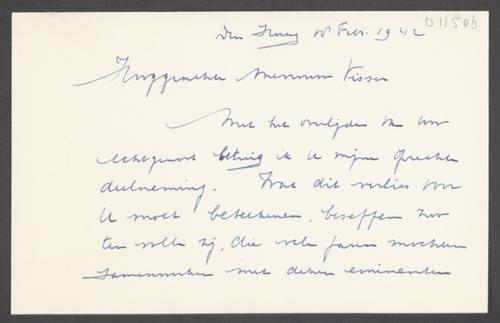 D 11506
Den Haag 18 Febr. 1942
Hooggeachte Mevrouw Visser
Met het overlijden van Uw
echtgenoot betuig ik U mijn oprechte
deelneming. Wat dit verlies voor
U moet beteekenen, beseffen
ten volle zij, die vele jaren mochten
samenwerken met dezen eminenten